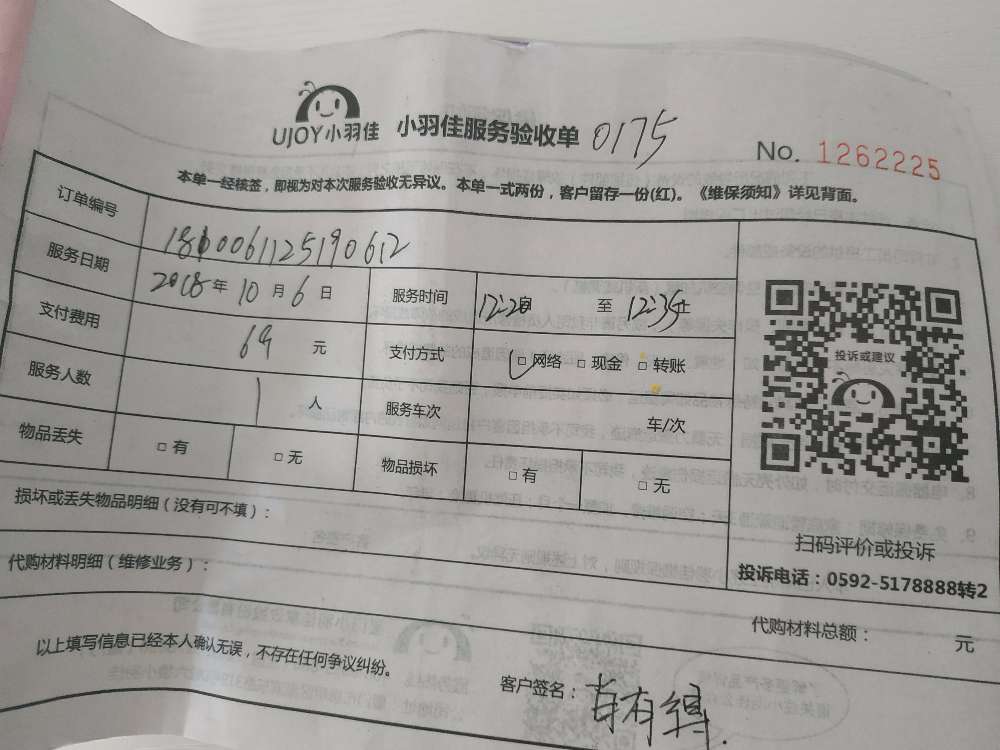 UJOY小羽佳 小羽佳服务验收单 0175
No. 1262225
本单一经核签，即视为对本次服务验收无异议。本单一式两份，客户留存一份(红)。《维保须知》详见背面。
订单编号 1810061125190612
服务日期 2018年 10 月 6 日 服务时间 12:20 至 12:35
支付费用 69 元 支付方式 □ 网络 □ 现金 □ 转账
服务人数 1 人 服务车次 车/次
物品丢失 □ 有 □ 无 物品损坏 □ 有 □ 无
投诉或建议
扫码评价或投诉
投诉电话：0592-5178888转2
损坏或丢失物品明细（没有可不填）：
代购材料明细（维修业务）：
代购材料总额： 元
以上填写信息已经本人确认无误，不存在任何争议纠纷。
客户签名：